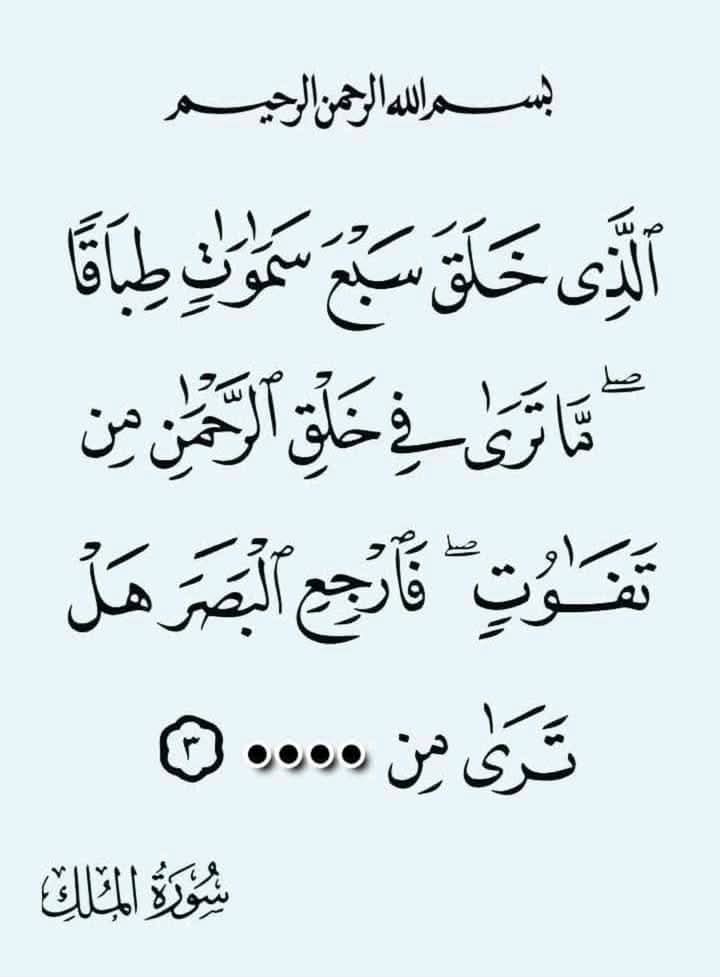 بسم الله الرحمن الرحيم
ٱلَّذِى خَلَقَ سَبْعَ سَمَٰوَٰتٍ طِبَاقًا
ۖ مَّا تَرَىٰ فِى خَلْقِ ٱلرَّحْمَٰنِ مِن
تَفَٰوُتٍ ۖ فَٱرْجِعِ ٱلْبَصَرَ هَلْ
تَرَىٰ مِن •••• ٣
سُورَةُ المُلكِ